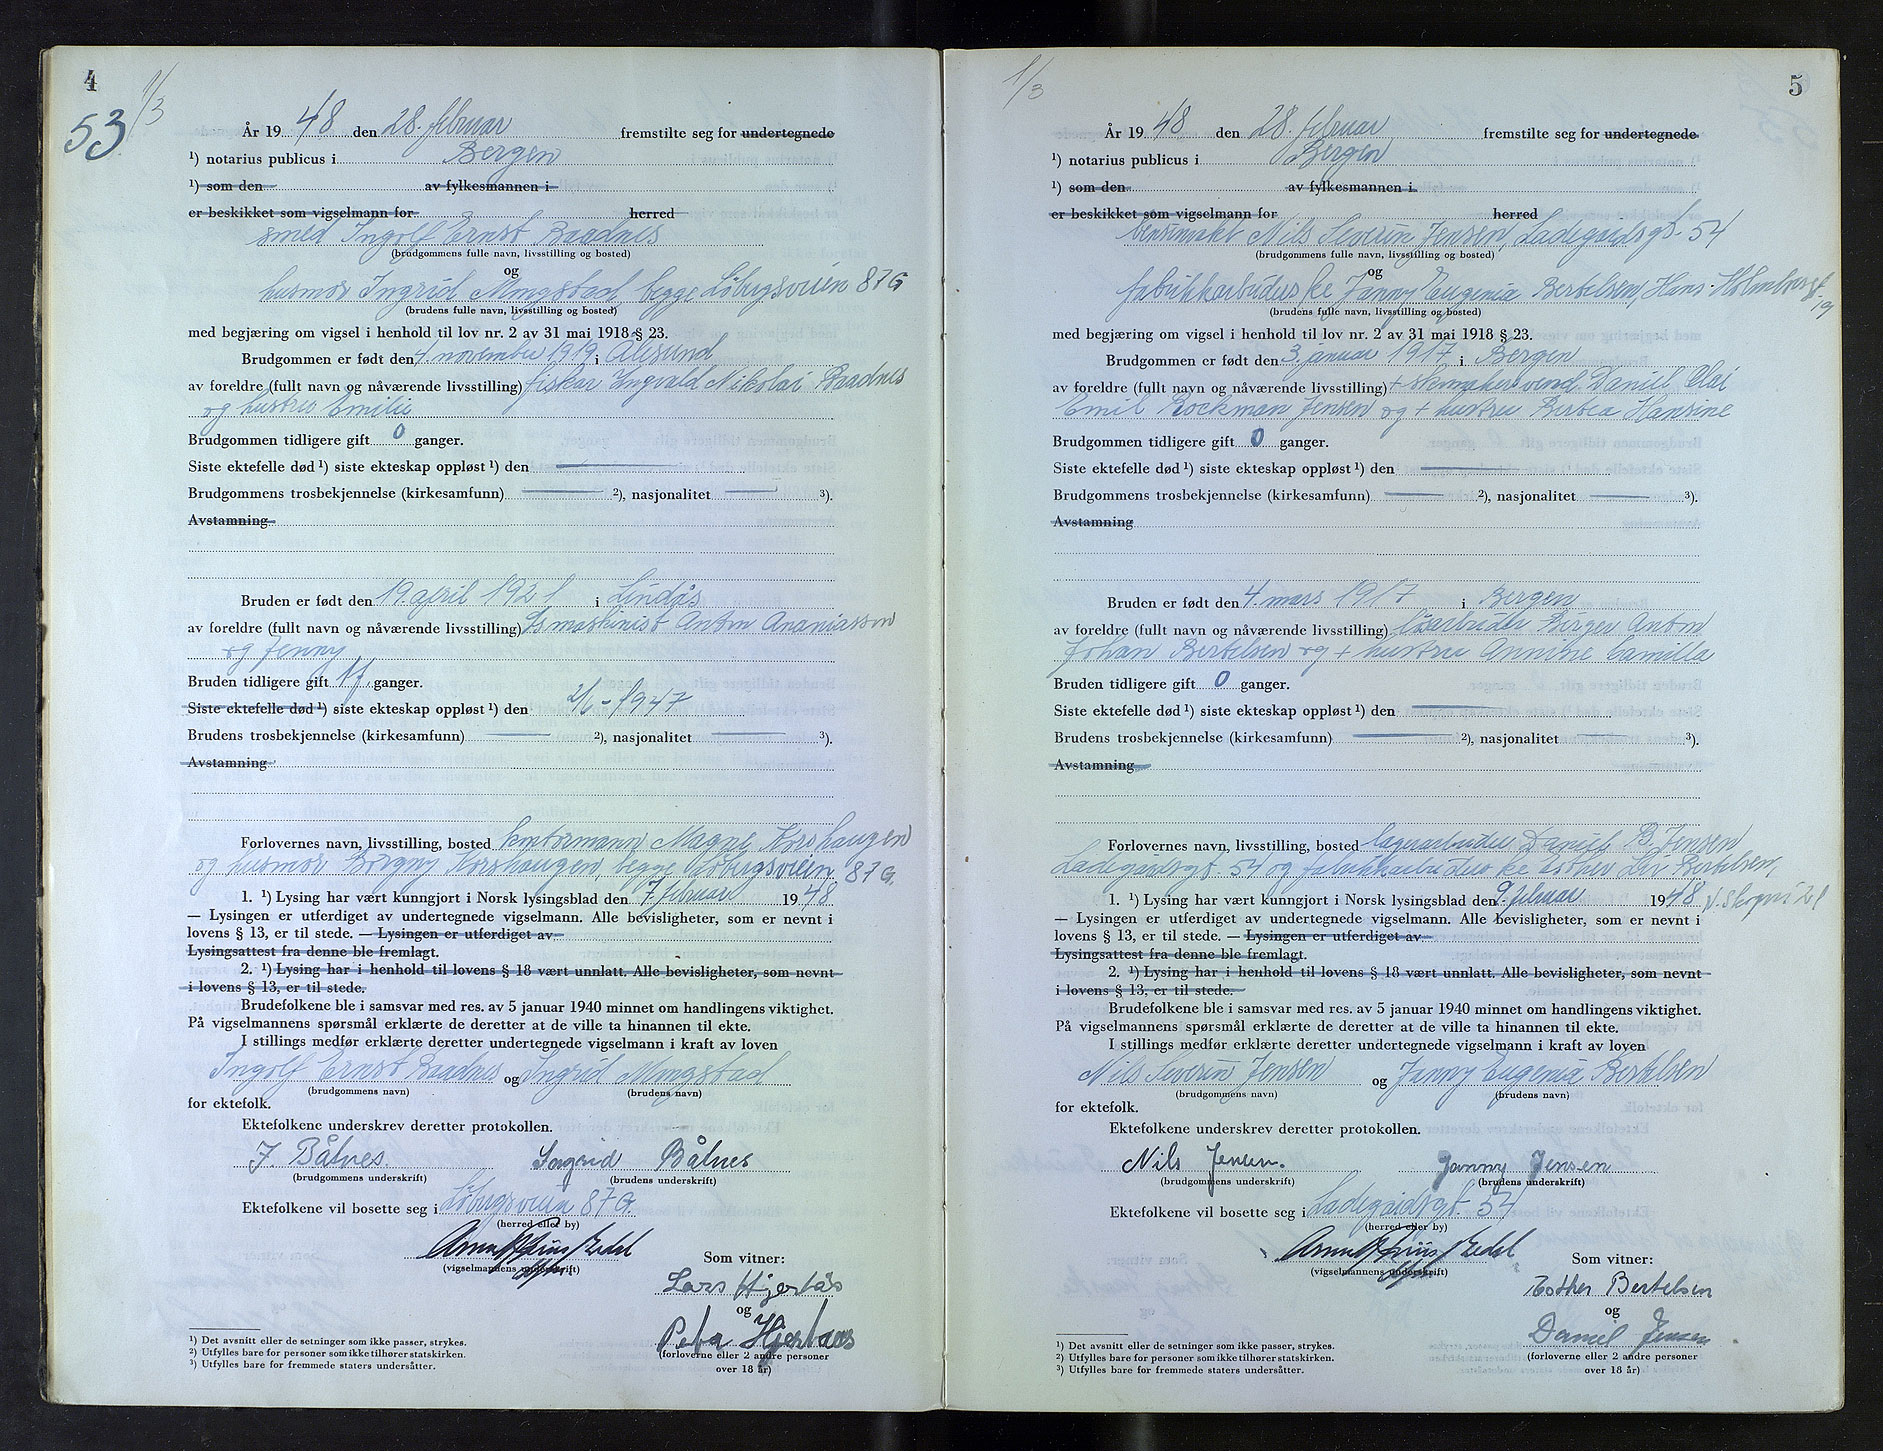 4
1/3
53
År 19 48 den 28. februar fremstilte seg for undertegnede
¹) notarius publicus i Bergen
¹) som den av fylkesmannen i
er beskikket som vigselmann for herred
smed Ingolf Ernst Baadnes
(brudgommens fulle navn, livsstilling og bosted)
og
husmor Ingrid Mongstad, begge Löbergsveien 87G
(brudens fulle navn, livsstilling og bosted)
med begjæring om vigsel i henhold til lov nr. 2 av 31 mai 1918 § 23.
Brudgommen er født den 4. november 1919 i Ålesund
av foreldre (fullt navn og nåværende livsstilling) fisker Ingvald Nikolai Baadnes
og hustru Emilie
Brudgommen tidligere gift 0 ganger.
Siste ektefelle død ¹) siste ekteskap oppløst ¹) den
Brudgommens trosbekjennelse (kirkesamfunn) ²), nasjonalitet ³).
Avstamning
Bruden er født den 19. april 1921 i Lindås
av foreldre (fullt navn og nåværende livsstilling) maskinist Anton Ananiassen
og Jenny
Bruden tidligere gift 1 ganger.
Siste ektefelle død ¹) siste ekteskap oppløst ¹) den 2/6-1947
Brudens trosbekjennelse (kirkesamfunn) ²), nasjonalitet ³).
Avstamning
Forlovernes navn, livsstilling, bosted kontormann Magne Korshaugen
og husmor Borgny Korshaugen, begge Löbergsveien 87G.
1. ¹) Lysing har vært kunngjort i Norsk lysingsblad den 7. februar 1948
— Lysingen er utferdiget av undertegnede vigselmann. Alle bevisligheter, som er nevnt i
lovens § 13, er til stede. — Lysingen er utferdiget av
Lysingsattest fra denne ble fremlagt.
2. ¹) Lysing har i henhold til lovens § 18 vært unnlatt. Alle bevisligheter, som nevnt
i lovens § 13, er til stede.
Brudefolkene ble i samsvar med res. av 5 januar 1940 minnet om handlingens viktighet.
På vigselmannens spørsmål erklærte de deretter at de ville ta hinannen til ekte.
I stillings medfør erklærte deretter undertegnede vigselmann i kraft av loven
Ingolf Ernst Baadnes og Ingrid Mongstad
(brudgommens navn) (brudens navn)
for ektefolk.
Ektefolkene underskrev deretter protokollen.
I. Båtnes Ingrid Båtnes
(brudgommens underskrift) (brudens underskrift)
Ektefolkene vil bosette seg i Löbergsveien 87G.
(herred eller by)
(vigselmannens underskrift)
Som vitner:
Lars Hjertås
og
Petra Hjertaas
(forloverne eller 2 andre personer
over 18 år)
¹) Det avsnitt eller de setninger som ikke passer, strykes.
²) Utfylles bare for personer som ikke tilhører statskirken.
³) Utfylles bare for fremmede staters undersåtter.
5
1/3
År 19 48 den 28. februar fremstilte seg for undertegnede
¹) notarius publicus i Bergen
¹) som den av fylkesmannen i
er beskikket som vigselmann for herred
Nils Severin Jensen, Ladegårdsgt. 54
(brudgommens fulle navn, livsstilling og bosted)
og
fabrikkarbeiderske Janny Eugenia Bertelsen, Hans Holmboesgt. 19
(brudens fulle navn, livsstilling og bosted)
med begjæring om vigsel i henhold til lov nr. 2 av 31 mai 1918 § 23.
Brudgommen er født den 3. januar 1917 i Bergen
av foreldre (fullt navn og nåværende livsstilling) + skomakersvend Daniel Olai
Emil Bockman Jensen og + hustru Bertea Hansine
Brudgommen tidligere gift 0 ganger.
Siste ektefelle død ¹) siste ekteskap oppløst ¹) den
Brudgommens trosbekjennelse (kirkesamfunn) ²), nasjonalitet ³).
Avstamning
Bruden er født den 4. mars 1917 i Bergen
av foreldre (fullt navn og nåværende livsstilling) løsarbeider Birger Anton
Johan Bertelsen og + hustru Annine Camilla
Bruden tidligere gift 0 ganger.
Siste ektefelle død ¹) siste ekteskap oppløst ¹) den
Brudens trosbekjennelse (kirkesamfunn) ²), nasjonalitet ³).
Avstamning
Forlovernes navn, livsstilling, bosted lagerarbeider Daniel B. Jensen
Ladegårdsgt. 54 og fabrikkarbeiderske Esther Liv Bertelsen,
1. ¹) Lysing har vært kunngjort i Norsk lysingsblad den 9. februar 1948
— Lysingen er utferdiget av undertegnede vigselmann. Alle bevisligheter, som er nevnt i
lovens § 13, er til stede. — Lysingen er utferdiget av
Lysingsattest fra denne ble fremlagt.
2. ¹) Lysing har i henhold til lovens § 18 vært unnlatt. Alle bevisligheter, som nevnt
i lovens § 13, er til stede.
Brudefolkene ble i samsvar med res. av 5 januar 1940 minnet om handlingens viktighet.
På vigselmannens spørsmål erklærte de deretter at de ville ta hinannen til ekte.
I stillings medfør erklærte deretter undertegnede vigselmann i kraft av loven
Nils Severin Jensen og Janny Eugenia Bertelsen
(brudgommens navn) (brudens navn)
for ektefolk.
Ektefolkene underskrev deretter protokollen.
Nils Jensen. Janny Jensen
(brudgommens underskrift) (brudens underskrift)
Ektefolkene vil bosette seg i Ladegårdsgt. 54
(herred eller by)
(vigselmannens underskrift)
Som vitner:
Esther Bertelsen
og
Daniel Jensen.
(forloverne eller 2 andre personer
over 18 år)
¹) Det avsnitt eller de setninger som ikke passer, strykes.
²) Utfylles bare for personer som ikke tilhører statskirken.
³) Utfylles bare for fremmede staters undersåtter.